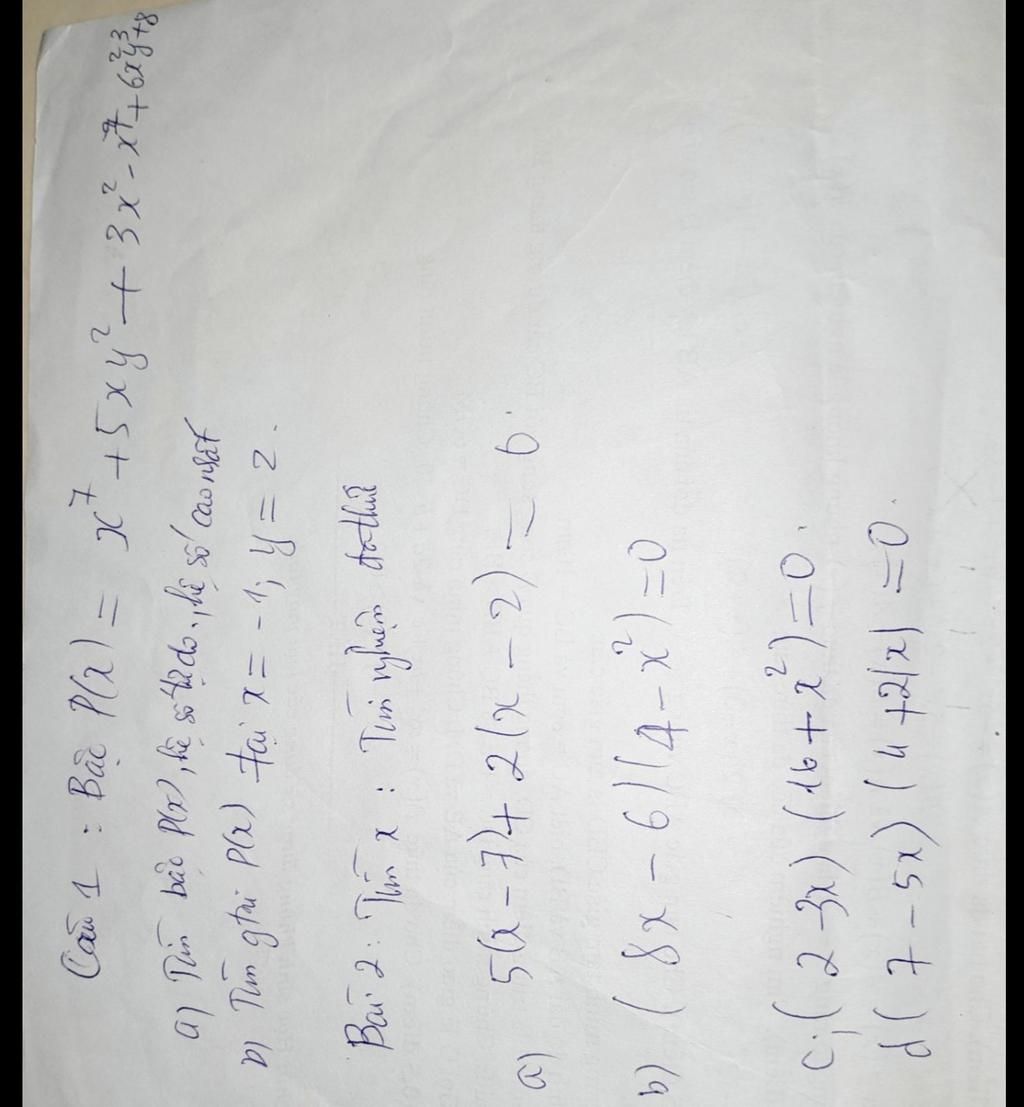 Câu 1 : Bậc P(x) = x⁷ + 5xy² + 3x² - x⁷ + 6x²y³ + 8
a) Tìm bậc P(x), hệ số tự do, hệ số cao nhất
b) Tìm gtrị P(x) tại x = -1; y = 2.
Bài 2: Tìm x : Tìm nghiệm đa thức
a) 5(x - 7) + 2(x - 2) = 6.
b) (8x - 6)(4 - x²) = 0
c, (2 - 3x)(16 + x²) = 0.
d (7 - 5x)(4 + 2|x| = 0.